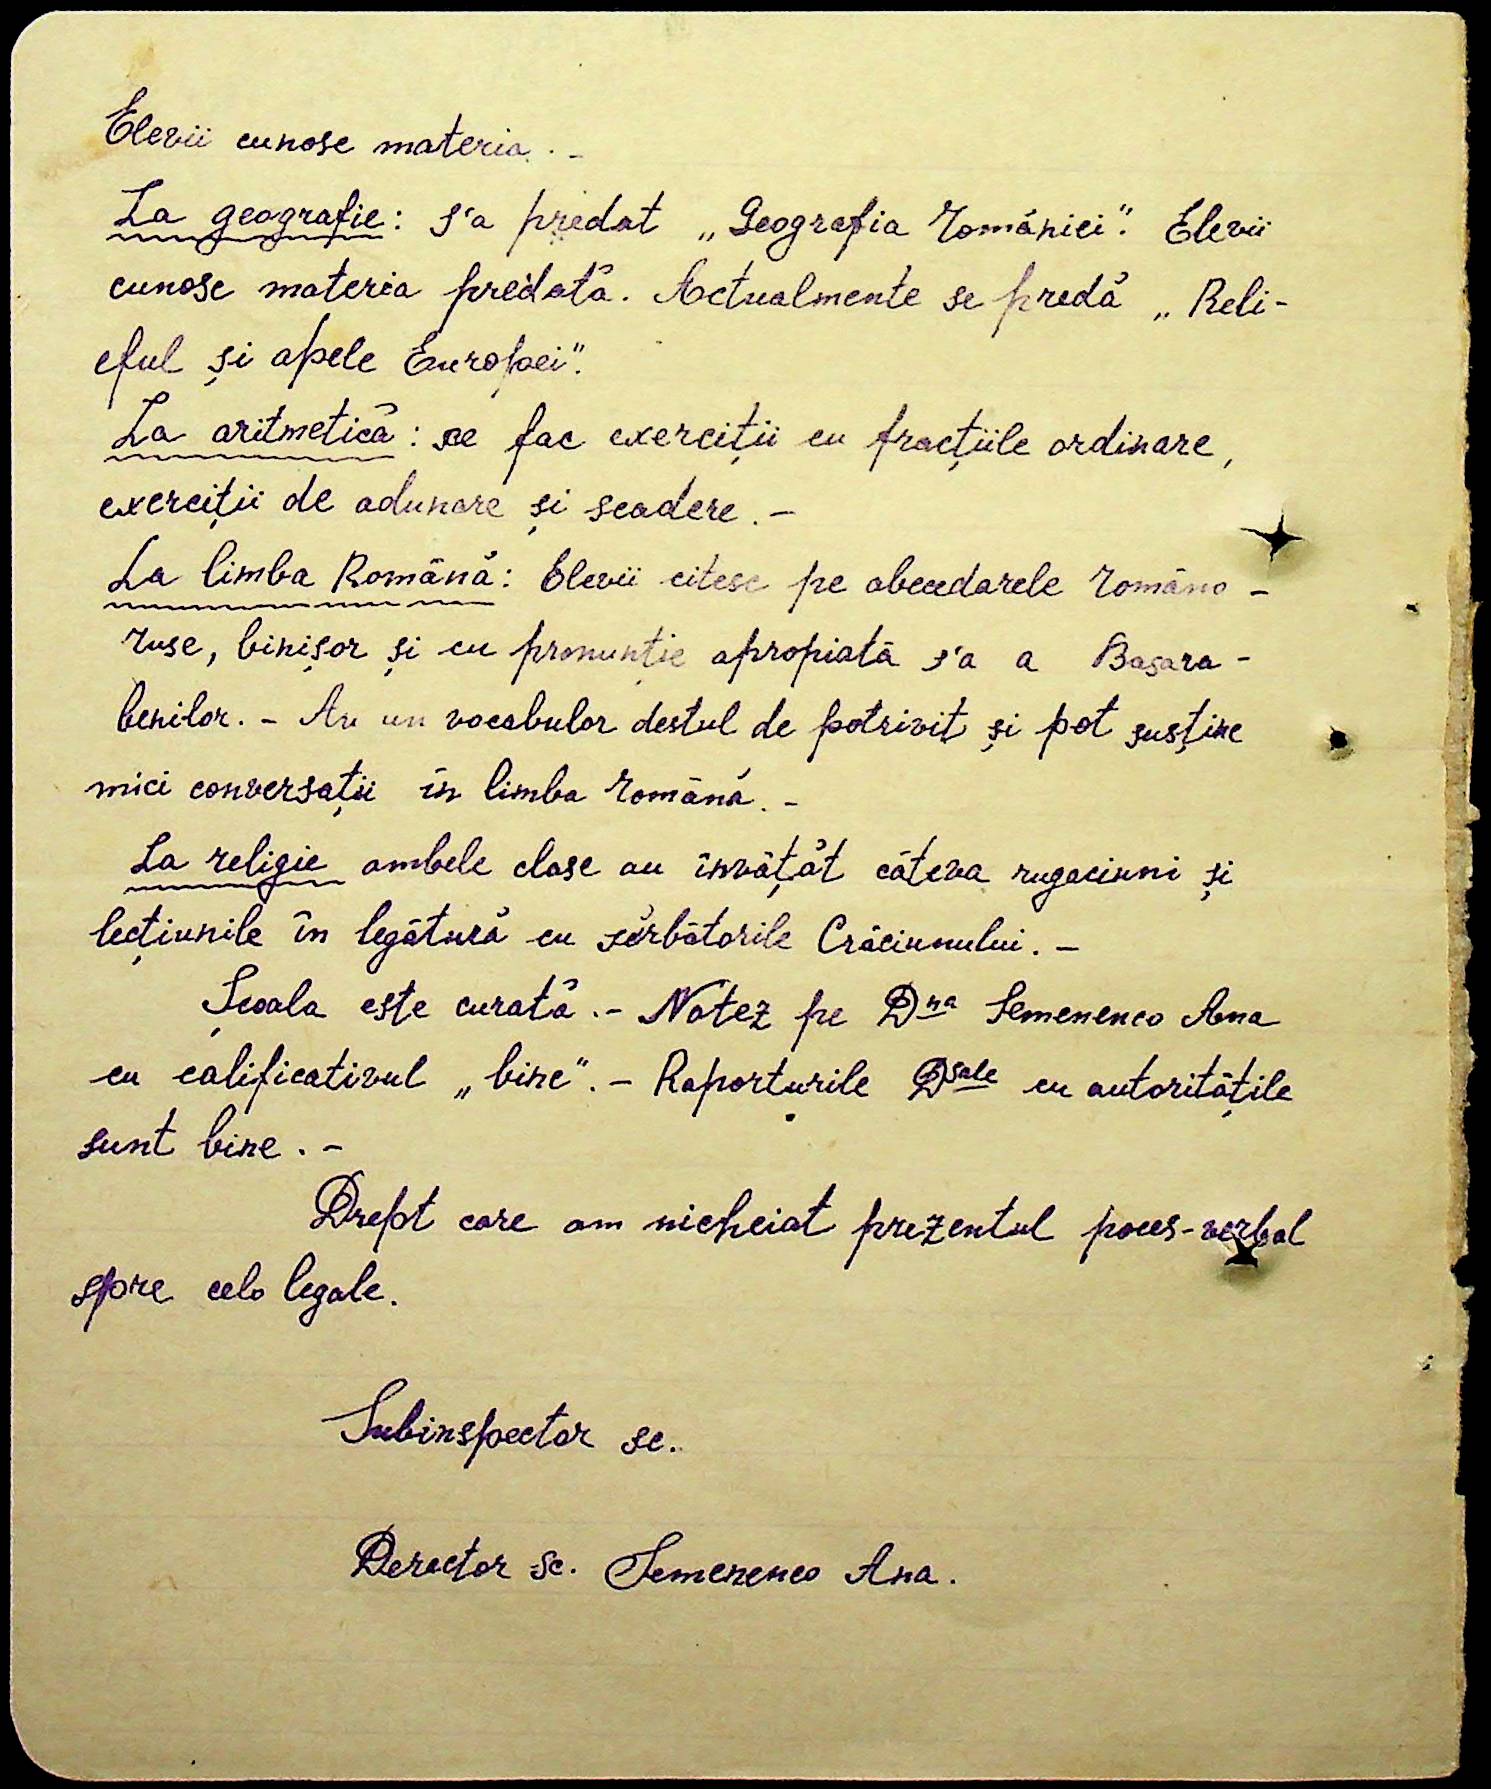 Elevii cunosc materia. -
La geografie: s'a predat „Geografia României". Elevii
cunosc materia predată. Actualmente se predă „Reli-
eful și apele Europei".
La aritmetică: se fac exerciții cu fracțiile ordinare,
exerciții de adunare și scadere. -
La limba Română: Elevii citesc pe abecedarele Româno-
ruse, binișor și cu pronunție apropiată s'a a Basara-
benilor. - Au un vocabular destul de potrivit și pot susține
mici conversații în limba română. -
La religie ambele clase au învățăt câteva rugaciuni și
lecțiunile în legătură cu sărbătorile Crăciunului. -
Școala este curată. - Notez pe Dna Semenenco Ana
cu calificativul „bine". - Raporturile Dsale cu autoritățile
sunt bine. -
Drept care am nicheiat prezentul poces-verbal
spre cele legale.
Subinspector sc.
Derector sc. Semenenco Ana.